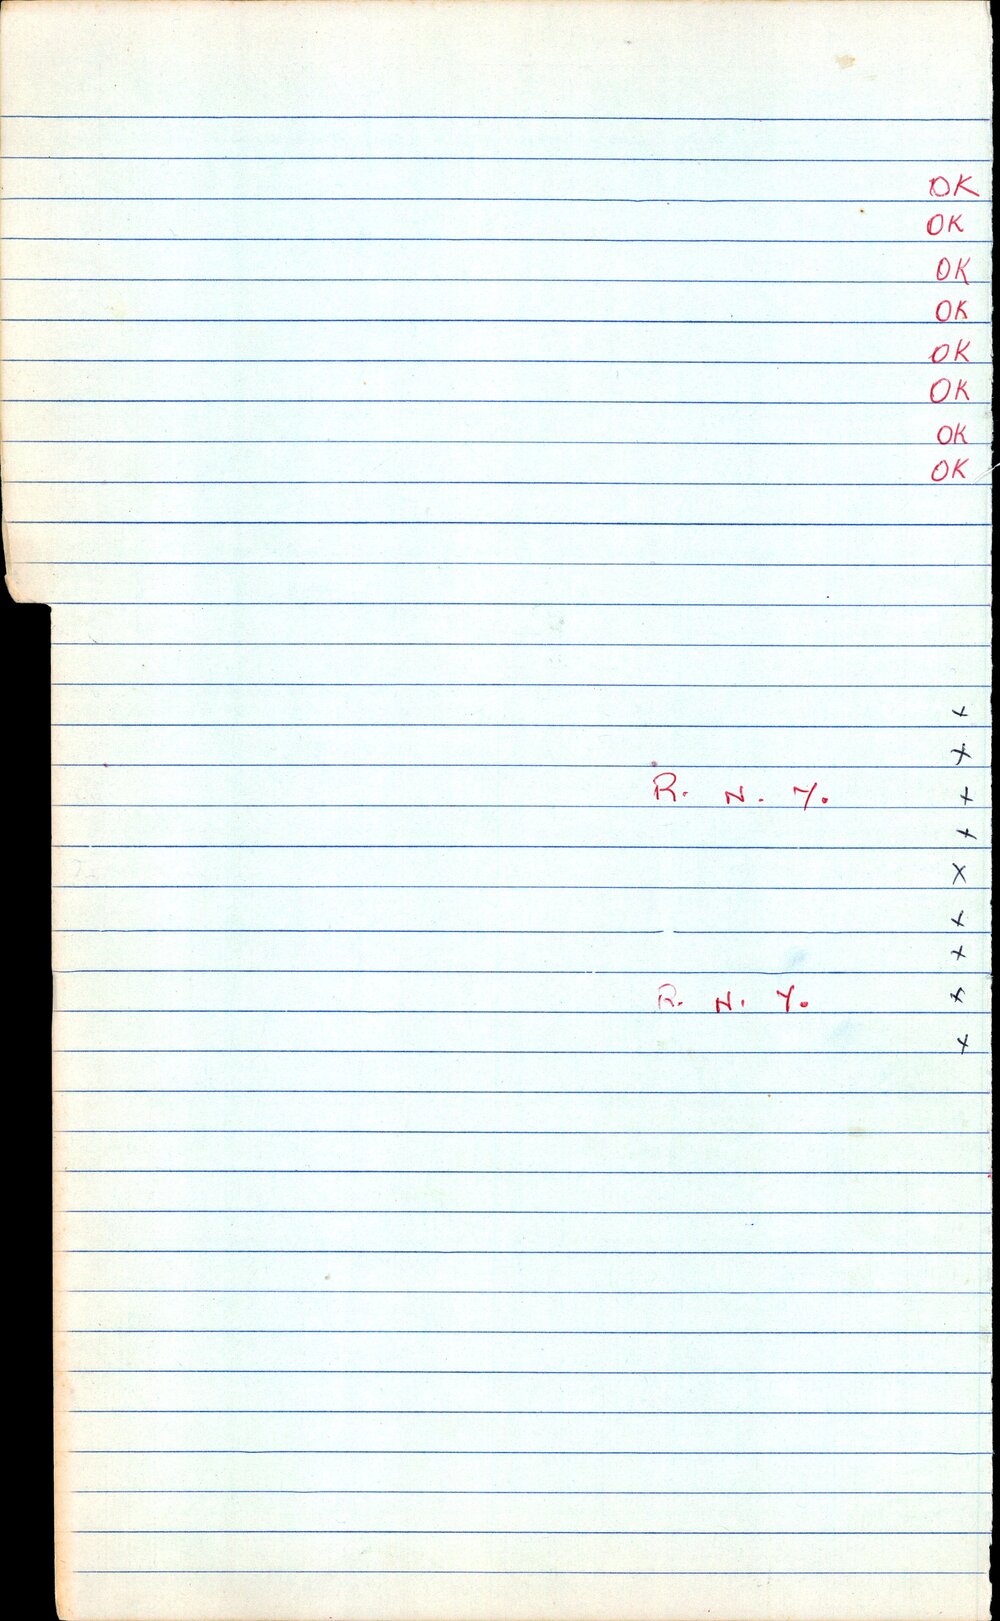 OK
OK
OK
OK
OK
OK
OK
OK
x
x
R. N. Y. x
x
x
x
x
R. N. Y. x
x